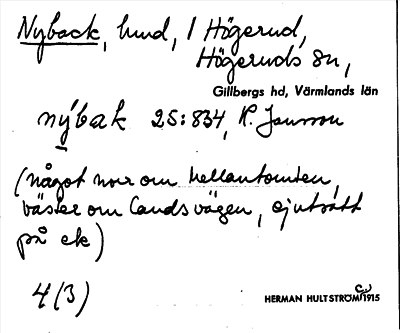 Nyback, lund, 1 Högerud,
Högeruds sn,
Gillbergs hd, Värmlands län
nýbak 25:834, R. Jansson
(något norr om Mellantomten,
väster om landsvägen, ej utsatt
på ek)
4(3)
HERMAN HULTSTRÖM 1915